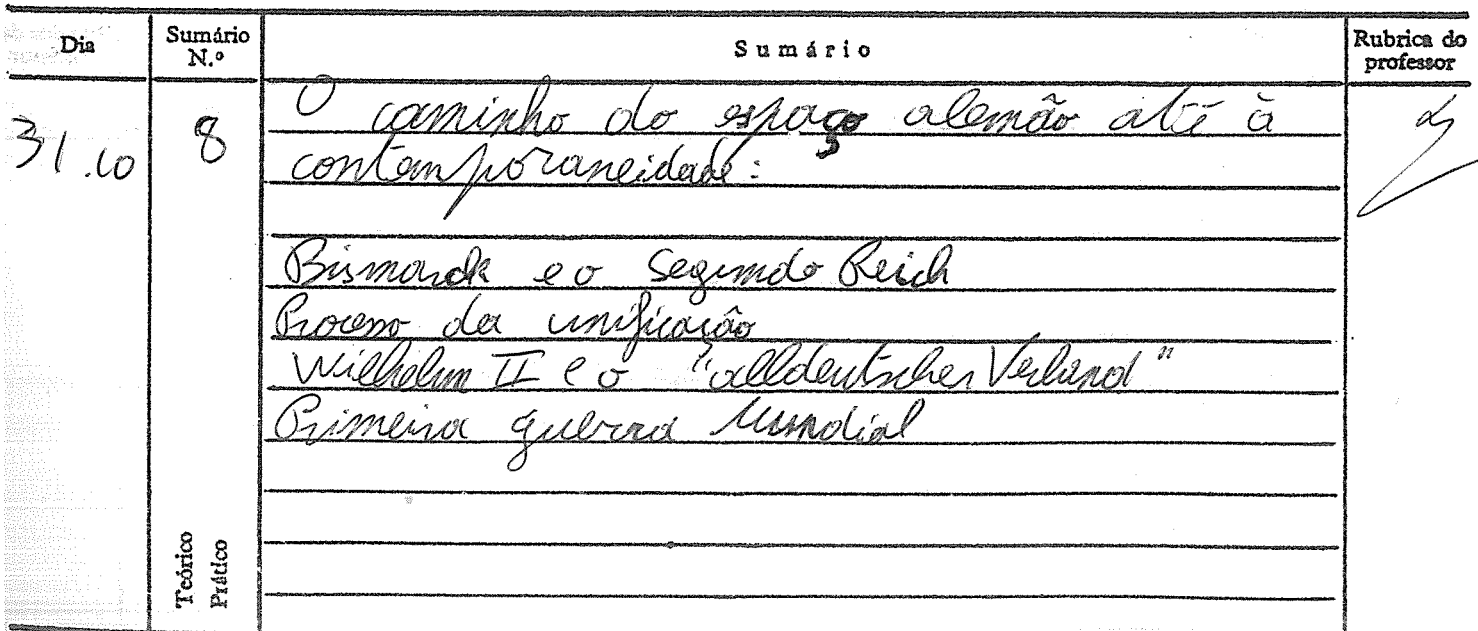 Dia Sumário N.º Sumário Rubrica do professor
31.10 8 O caminho do espaço alemão até à
contemporaneidade:
Bismarck e o Segundo Reich
Processo da unificação
Wilhelm II e o "alldeutscher Verband"
Primeira guerra Mundial
Teórico
Prático